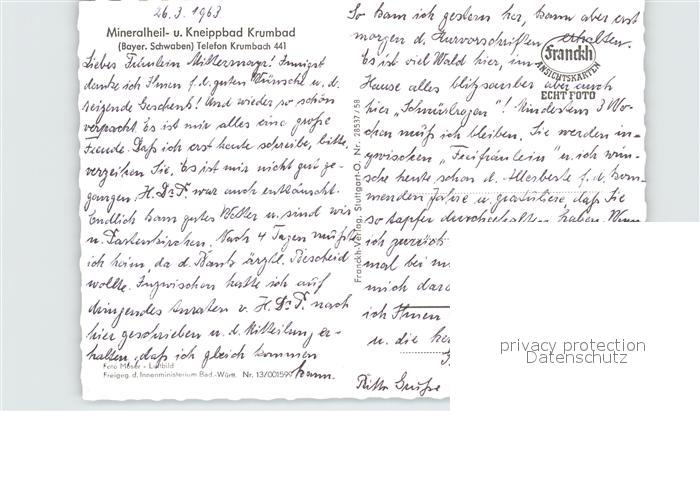 26.3.1963
Mineralheil- u. Kneippbad Krumbad
(Bayer. Schwaben) Telefon Krumbach 441
Liebes Fräulein Mittermayr! Innigst
danke ich Ihnen f. d. guten Wünsche u. d.
reizende Geschenk! Und wieder so schön
verpackt. Es ist mir alles eine große
Freude. Daß ich erst heute schreibe, bitte
verzeihen Sie. Es ist mir nicht gut ge-
gangen. H. Dr. P. war auch enttäuscht.
Endlich kam gutes Wetter u. sind wir
n. Partenkirchen. Nach 4 Tagen mußte
ich heim, da d. Bank ärztl. Bescheid
wollte. Inzwischen hatte ich auf
dringendes Anraten v. H. Dr. P. nach
hier geschrieben u. d. Mitteilung er-
halten, daß ich gleich kommen
kann.
Foto Moser - Luftbild
Freigeg. d. Innenministerium Bad.-Württ. Nr. 13/001599
Franckh-Verlag, Stuttgart-O, Nr. 28537/58
So kam ich gestern her, kann aber erst
morgen d. Kurvorschriften erhalten.
Es ist viel Wald hier, im
Hause alles blitzsauber aber auch
hier „Schnürlregen"! Mindestens 3 Wo-
chen muß ich bleiben. Sie werden in-
zwischen „Freifräulein" u. ich wün-
sche heute schon d. Allerbeste f. d. kom-
menden Jahre u. gratuliere, daß Sie
so tapfer durchgehalten haben. Wenn
ich zurück
mal bei m
mich dar
ich Ihnen
u. die he
Grüße
Franckh
ANSICHTSKARTEN
ECHT FOTO
privacy protection
Datenschutz